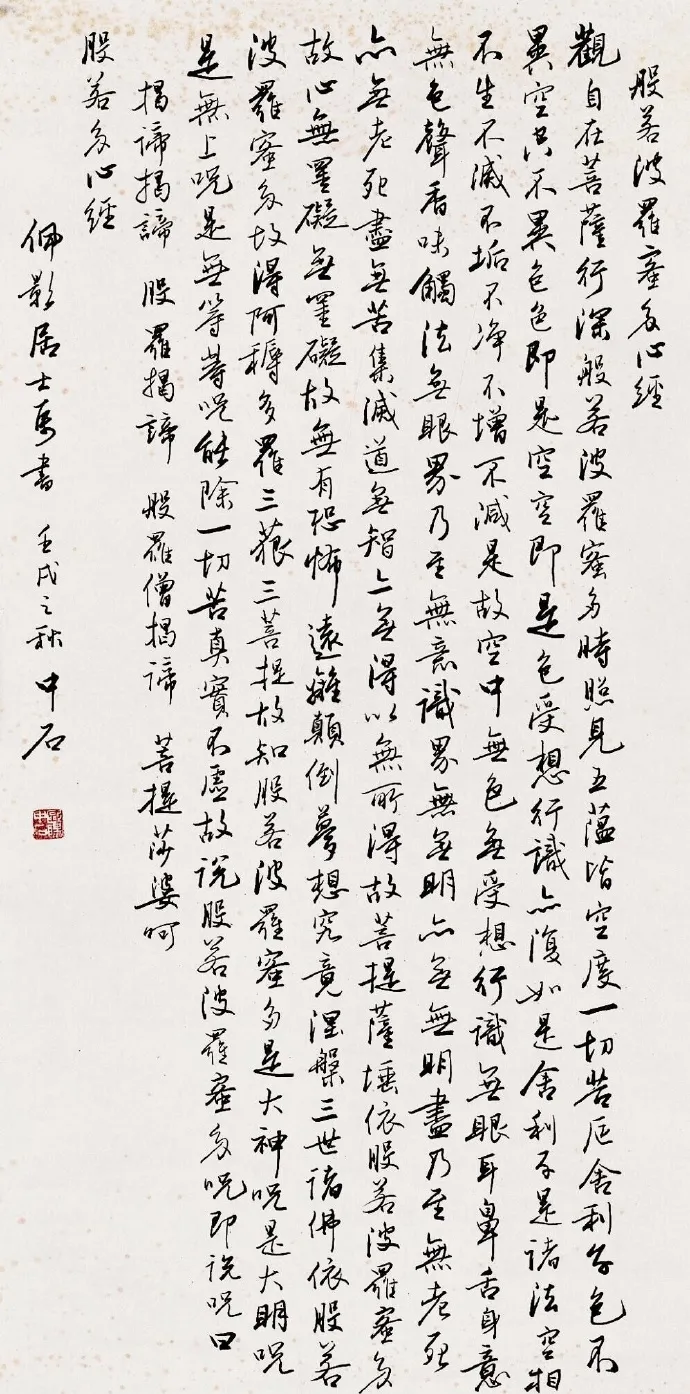 般若波羅蜜多心經
觀自在菩薩行深般若波羅蜜多時照見五蘊皆空度一切苦厄舍利子色不
異空空不異色色即是空空即是色受想行識亦復如是舍利子是諸法空相
不生不滅不垢不净不增不減是故空中無色無受想行識無眼耳鼻舌身意
無色聲香味觸法無眼界乃至無意識界無無明亦無無明盡乃至無老死
亦無老死盡無苦集滅道無智亦無得以無所得故菩提薩埵依般若波羅蜜多
故心無罣礙無罣礙故無有恐怖遠離顛倒夢想究竟涅槃三世諸佛依般若
波羅蜜多故得阿耨多羅三藐三菩提故知般若波羅蜜多是大神呪是大明呪
是無上呪是無等等呪能除一切苦真實不虛故説般若波羅蜜多呪即説呪曰
揭諦揭諦 般羅揭諦 般羅僧揭諦 菩提莎婆呵
般若多心經
佩影居士馬書 壬戌之秋 中石